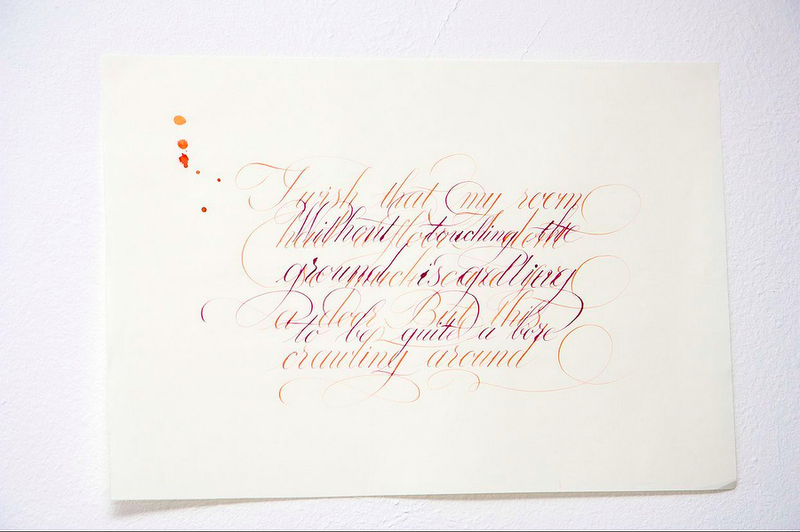 I wish that my room
Without touching the
ground is getting
a door. But this
to be quite a bore
crawling around